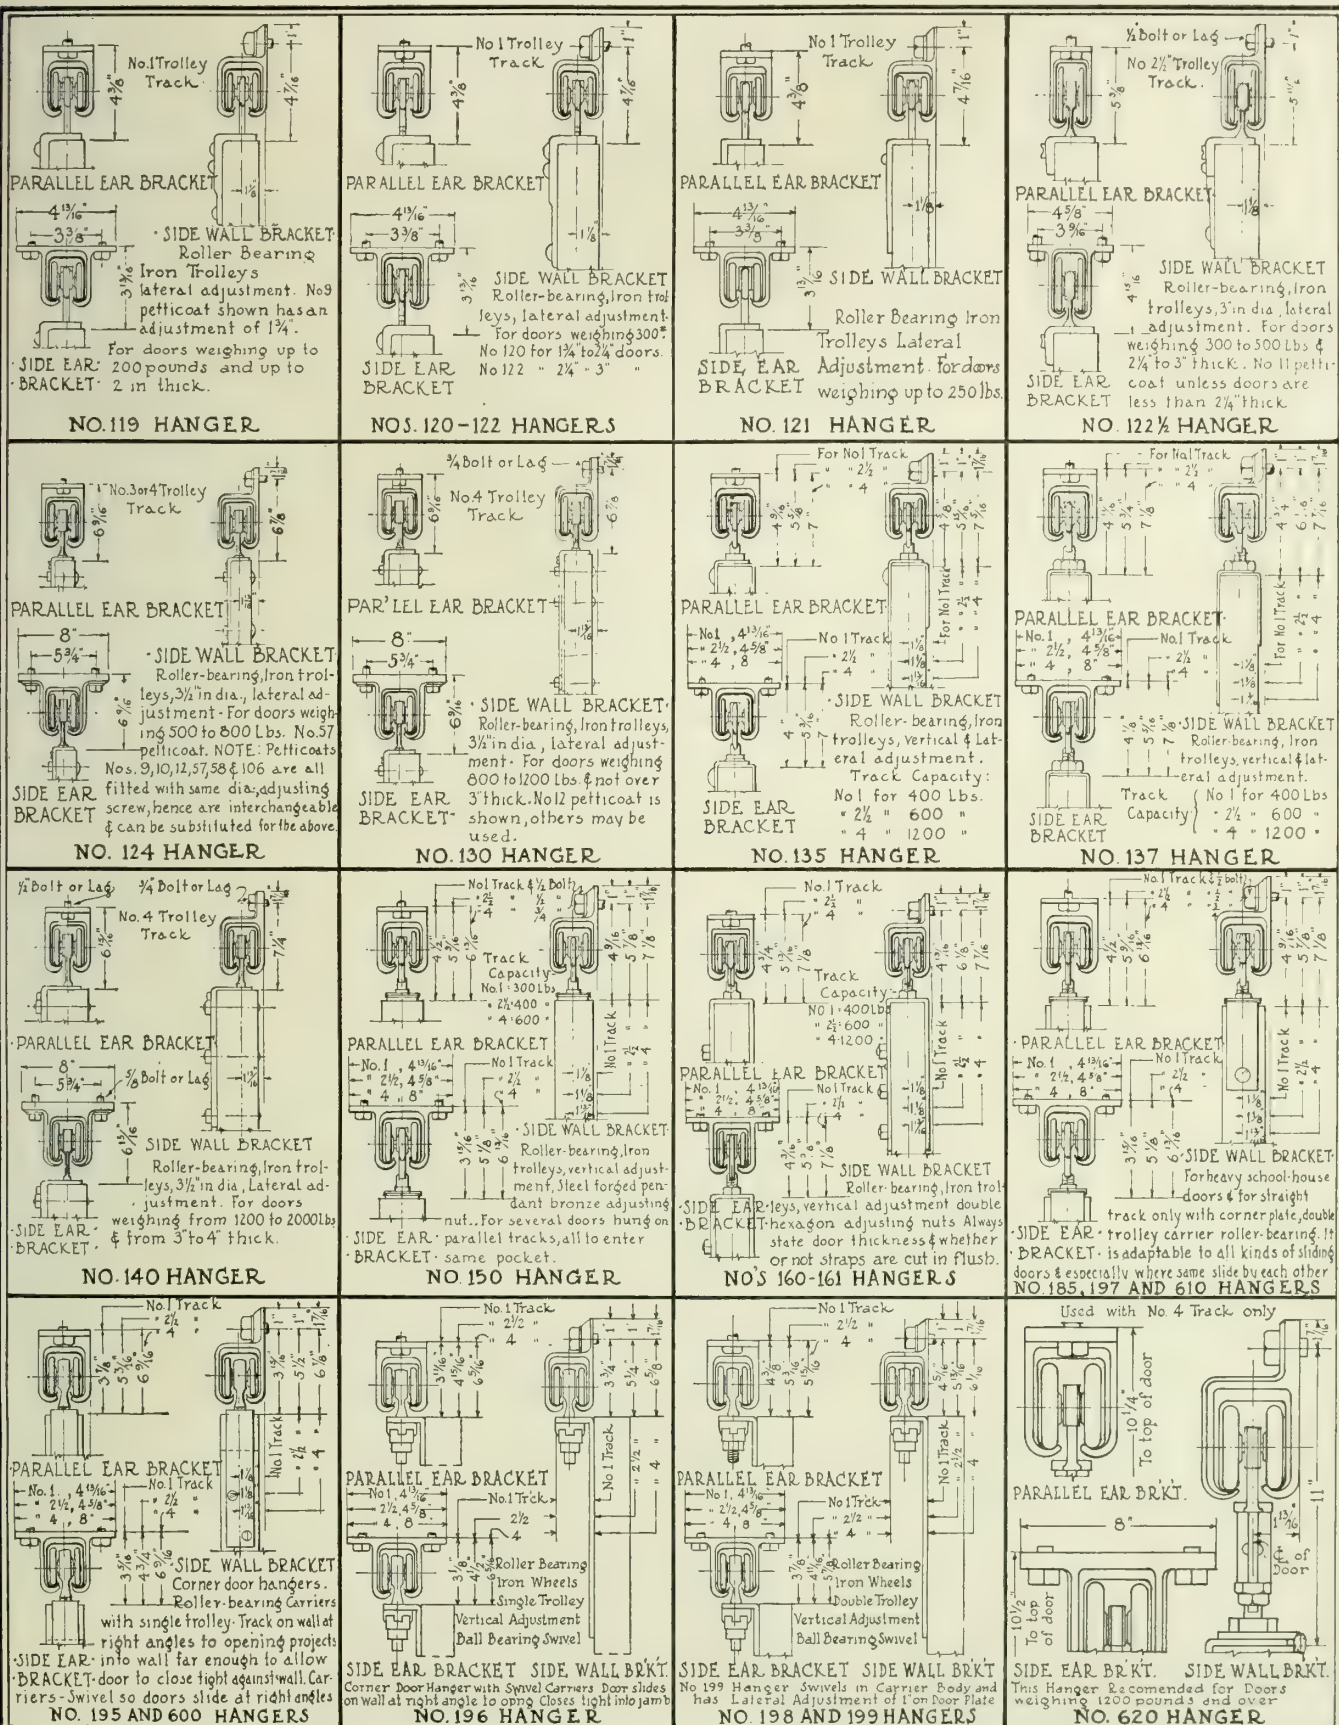 No.1 Trolley
Track
4 3/8"
1"
4 7/16"
PARALLEL EAR BRACKET
1 1/8"
4 13/16"
3 3/8"
3 13/16"
· SIDE WALL BRACKET·
Roller Bearing
Iron Trolleys
lateral adjustment. No9
petticoat shown has an
adjustment of 1 3/4".
For doors weighing up to
200 pounds and up to
2 in thick.
· SIDE EAR·
BRACKET·
NO. 119 HANGER
No 1 Trolley
Track
4 3/8"
1"
4 7/16"
PARALLEL EAR BRACKET
4 13/16"
3 3/8"
1 1/8"
3 13/16"
SIDE WALL BRACKET
Roller-bearing, Iron trol
leys, lateral adjustment·
For doors weighing 300#
No 120 for 1 3/4" to 2 1/4" doors.
No 122 " 2 1/4" - 3" "
SIDE EAR
BRACKET
NOS. 120-122 HANGERS
No 1 Trolley
Track
4 3/8"
1"
4 7/16"
PARALLEL EAR BRACKET
4 13/16"
3 3/8"
1 1/8"
3 13/16"
SIDE WALL BRACKET
Roller Bearing Iron
Trolleys Lateral
Adjustment. For doors
weighing up to 250 lbs.
SIDE EAR
BRACKET
NO. 121 HANGER
1/2" Bolt or Lag
No 2 1/2" Trolley
Track.
5 3/8"
1"
PARALLEL EAR BRACKET
4 5/8"
3 9/16"
1 1/8"
4 15/16"
SIDE WALL BRACKET
Roller-bearing, Iron
trolleys, 3" in dia, lateral
adjustment. For doors
weighing 300 to 500 Lbs &
2 1/4" to 3" thick. No 11 petti-
coat unless doors are
less than 2 1/4" thick
SIDE EAR
BRACKET
NO. 122 1/2 HANGER
No. 3 or 4 Trolley
Track
6 9/16"
6 7/8"
PARALLEL EAR BRACKET
8"
5 3/4"
6 9/16"
· SIDE WALL BRACKET·
Roller-bearing, Iron trol-
leys, 3 1/2" in dia., lateral ad-
justment - For doors weigh-
ing 500 to 800 Lbs. No. 57
petticoat. NOTE: Petticoats
Nos. 9, 10, 12, 57, 58 & 106 are all
fitted with same dia., adjusting
screw, hence are interchangeable
& can be substituted for the above.
SIDE EAR
BRACKET
NO. 124 HANGER
3/4 Bolt or Lag
No.4 Trolley
Track
6 9/16"
6 7/8"
PAR'LEL EAR BRACKET
8"
5 3/4"
6 9/16"
· SIDE WALL BRACKET
Roller-bearing, Iron trolleys,
3 1/2" in dia, lateral adjust-
ment· For doors weighing
800 to 1200 Lbs. & not over
3" thick. No 12 petticoat is
shown, others may be
used.
SIDE EAR
BRACKET·
NO. 130 HANGER
For No1 Track
" " 2 1/2 "
" " 4 "
PARALLEL EAR BRACKET
No1 , 4 13/16"
" 2 1/2, 4 5/8"
" 4 , 8"
No 1 Track
" 2 1/2 "
" 4 "
For No1 Track
· SIDE WALL BRACKET
Roller-bearing, Iron
trolleys, vertical & Lat-
eral adjustment.
Track Capacity:
No 1 for 400 Lbs.
" 2 1/2 " 600 "
" 4 " 1200 "
SIDE EAR
BRACKET
NO. 135 HANGER
For No1 Track
" " 2 1/2 "
" " 4 "
PARALLEL EAR BRACKET·
No.1 , 4 13/16"
" 2 1/2, 4 5/8"
" 4 , 8"
No.1 Track
" 2 1/2 "
" 4 "
For No1 Track
· SIDE WALL BRACKET
Roller-bearing, Iron
trolleys, vertical & lat-
eral adjustment.
Track
Capacity
No 1 for 400 Lbs
" 2 1/2 " 600 "
" 4 " 1200 "
SIDE EAR
BRACKET
NO. 137 HANGER
1/2" Bolt or Lag
3/4" Bolt or Lag
No. 4 Trolley
Track
6 13/16"
7 1/4"
·PARALLEL EAR BRACKET
8"
5 3/4"
5/8 Bolt or Lag
6 13/16"
SIDE WALL BRACKET
Roller-bearing, Iron trol-
leys, 3 1/2" in dia, Lateral ad-
justment. For doors
weighing from 1200 to 2000 lbs
& from 3" to 4" thick.
·SIDE EAR·
BRACKET·
NO. 140 HANGER
No1 Track & 1/2 Bolt
" 2 1/2 " 1/2 "
" 4 " 3/4 "
Track
Capacity
No.1 : 300 Lbs
" 2 1/2 : 400 "
" 4 : 600 "
PARALLEL EAR BRACKET
No.1 , 4 13/16"
" 2 1/2, 4 5/8"
" 4 , 8"
No 1 Track
" 2 1/2 "
" 4 "
No 1 Track
· SIDE WALL BRACKET·
Roller-bearing, Iron
trolleys, vertical adjust-
ment, Steel forged pen-
dant bronze adjusting
nut.. For several doors hung on
· SIDE EAR· parallel tracks, all to enter
·BRACKET· same pocket.
NO. 150 HANGER
No.1 Track
" 2 1/2 "
" 4 "
Track
Capacity
NO 1 : 400 Lbs
" 2 1/2 : 600 "
" 4 : 1200 "
PARALLEL EAR BRACKET
No.1 4 13/16"
" 2 1/2, 4 5/8"
" 4 8"
No 1 Track
" 2 1/2 "
" 4 "
No 1 Track
SIDE WALL BRACKET
Roller-bearing, Iron trol-
·SIDE EAR· leys, vertical adjustment double
·BRACKET· hexagon adjusting nuts Always
state door thickness & whether
or not straps are cut in flush.
NO'S 160-161 HANGERS
No.1 Track & 1/2 bolt
·PARALLEL EAR BRACKET·
No. 1 , 4 13/16"
" 2 1/2, 4 5/8"
" 4 , 8"
No 1 Track
" 2 1/2 "
" 4
No 1 Track
·SIDE WALL BRACKET·
For heavy school-house
doors & for straight
track only with corner plate, double
·SIDE EAR· trolley carrier roller-bearing. It
·BRACKET· is adaptable to all kinds of sliding
doors & especially where same slide by each other
NO. 185, 197 AND 610 HANGERS
No.1 Track
" 2 1/2 "
" 4 "
·PARALLEL EAR BRACKET
No.1 , 4 13/16"
" 2 1/2, 4 5/8"
" 4 , 8"
No.1 Track
" 2 1/2 "
" 4 "
No1 Track
·SIDE WALL BRACKET
Corner door hangers.
Roller-bearing Carriers
with single trolley· Track on wall at
right angles to opening projects
·SIDE EAR· into wall far enough to allow
·BRACKET· door to close tight against wall. Car-
riers - Swivel so doors slide at right angles
NO. 195 AND 600 HANGERS
No.1 Track
" 2 1/2 "
" 4 "
PARALLEL EAR BRACKET
No 1, 4 13/16"
" 2 1/2, 4 5/8"
" 4 8"
No.1 Tr'ck
" 2 1/2 "
" 4
No 1 Track
Roller Bearing
Iron Wheels
Single Trolley
Vertical Adjustment
Ball Bearing Swivel
SIDE EAR BRACKET SIDE WALL BR'KT.
Corner Door Hanger with Swivel Carriers Door slides
on wall at right angle to opng Closes tight into jamb
NO. 196 HANGER
No 1 Track
" 2 1/2 "
" 4 "
PARALLEL EAR BRACKET
No 1, 4 13/16"
" 2 1/2, 4 5/8"
" 4 8"
No 1 Tr'ck
" 2 1/2 "
" 4 "
No 1 Track
Roller Bearing
Iron Wheels
Double Trolley
Vertical Adjustment
Ball Bearing Swivel
SIDE EAR BRACKET SIDE WALL BR'KT
No 199 Hanger Swivels in Carrier Body and
has Lateral Adjustment of 1" on Door Plate
NO. 198 AND 199 HANGERS
Used with No. 4 Track only
10 1/4"
To top of door
PARALLEL EAR BR'K'T.
8"
11"
1 13/16"
¢ of
Door
10 1/2"
To top
of door
SIDE EAR BR'KT. SIDE WALL BR'KT.
This Hanger Recomended for Doors
weighing 1200 pounds and over
NO. 620 HANGER